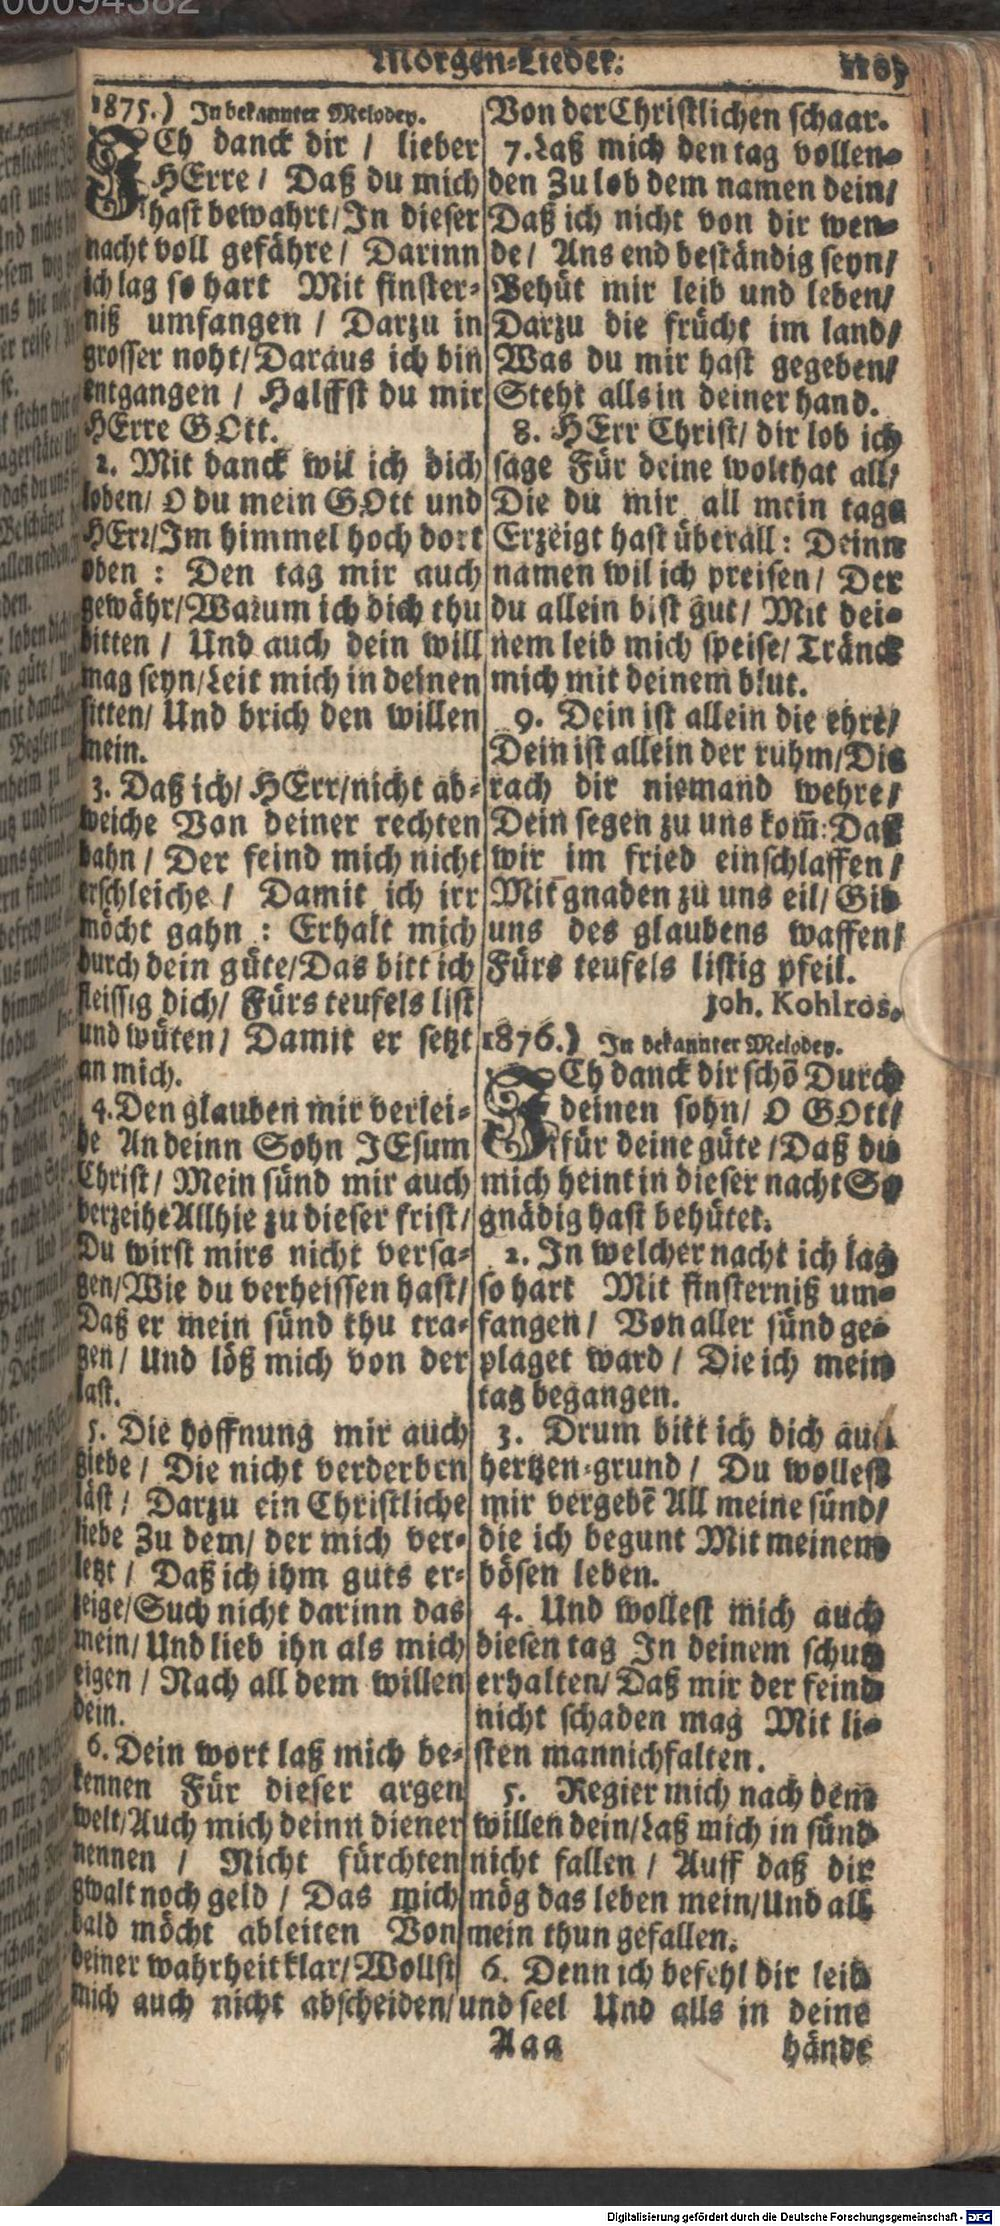 Morgen-Lieder.
1875.) In bekannter Melodey.
ICh danck dir / lieber
HErre / Daß du mich
hast bewahrt/In dieser
nacht voll gefähre / Darinn
ich lag so hart Mit finster-
niß umfangen / Darzu in
grosser noht/Daraus ich bin
entgangen / Halffst du mir
HErre GOtt.
2. Mit danck wil ich dich
loben/ O du mein GOtt und
HErr/Im himmel hoch dort
oben : Den tag mir auch
gewähr/Warum ich dich thu
bitten / Und auch dein will
mag seyn/Leit mich in deinen
sitten/ Und brich den willen
mein.
3. Daß ich/ HErr/nicht ab-
weiche Von deiner rechten
bahn / Der feind mich nicht
erschleiche / Damit ich irr
möcht gahn : Erhalt mich
durch dein güte/Das bitt ich
fleissig dich/ Fürs teufels list
und wüten/ Damit er setzt
an mich.
4. Den glauben mir verlei-
he An deinn Sohn JEsum
Christ/ Mein sünd mir auch
verzeihe Allhie zu dieser frist/
Du wirst mirs nicht versa-
gen/Wie du verheissen hast/
Daß er mein sünd thu tra-
gen/ Und löß mich von der
last.
5. Die hoffnung mir auch
giebe / Die nicht verderben
läst / Darzu ein Christliche
liebe Zu dem/ der mich ver-
letzt / Daß ich ihm guts er-
zeige/Such nicht darinn das
mein/Und lieb ihn als mich
eigen / Nach all dem willen
dein.
6. Dein wort laß mich be-
kennen Für dieser argen
welt/Auch mich deinn diener
nennen / Nicht fürchten
gwalt noch geld / Das mich
bald möcht ableiten Von
deiner wahrheit klar/Wollst
mich auch nicht abscheiden/
Von der Christlichen schaar.
7. Laß mich den tag vollen-
den Zu lob dem namen dein/
Daß ich nicht von dir wen-
de / Ans end beständig seyn/
Behüt mir leib und leben/
Darzu die frücht im land/
Was du mir hast gegeben/
Steht alls in deiner hand.
8. HErr Christ/ dir lob ich
sage Für deine wolthat all/
Die du mir all mein tage
Erzeigt hast überall : Deinn
namen wil ich preisen / Der
du allein bist gut/ Mit dei-
nem leib mich speise/ Tränck
mich mit deinem blut.
9. Dein ist allein die ehre/
Dein ist allein der ruhm/Die
rach dir niemand wehre/
Dein segen zu uns kom̃: Daß
wir im fried einschlaffen /
Mit gnaden zu uns eil/ Gib
uns des glaubens waffen/
Fürs teufels listig pfeil.
Joh. Kohlros.
1876.) In bekannter Melodey.
ICh danck dir schõ Durch
deinen sohn/ O GOtt/
für deine güte / Daß du
mich heint in dieser nacht So
gnädig hast behütet.
2. In welcher nacht ich lag
so hart Mit finsterniß um-
fangen / Von aller sünd ge-
plaget ward / Die ich mein
tag begangen.
3. Drum bitt ich dich aus
hertzen-grund / Du wollest
mir vergebẽ All meine sünd/
die ich begunt Mit meinem
bösen leben.
4. Und wollest mich auch
diesen tag In deinem schutz
erhalten/ Daß mir der feind
nicht schaden mag Mit li-
sten mannichfalten.
5. Regier mich nach dem
willen dein/Laß mich in sünd
nicht fallen / Auff daß dir
mög das leben mein/Und all
mein thun gefallen.
6. Denn ich befehl dir leib
und seel Und alls in deine
Aaa hände
Digitalisierung gefördert durch die Deutsche Forschungsgemeinschaft - DFG